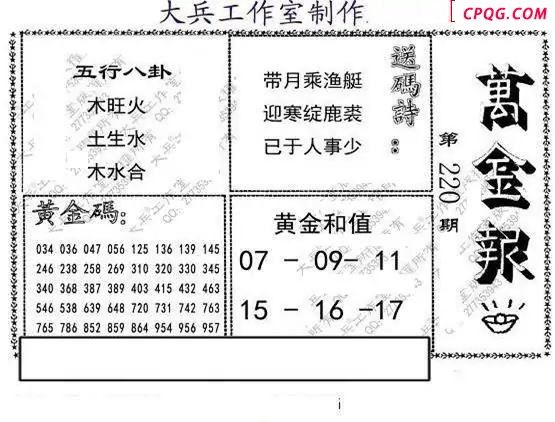 大兵工作室制作
CPQG.COM
五行八卦
木旺火
土生水
木水合
带月乘渔艇
迎寒绽鹿裘
已于人事少
送碼詩：
萬金報
第220期
黄金碼：
034 036 047 056 125 136 139 145
246 238 258 269 310 320 330 345
340 368 387 389 403 415 432 463
546 538 639 648 720 731 742 763
765 786 852 859 864 954 956 957
黄金和值
07 - 09- 11
15 - 16 -17
i